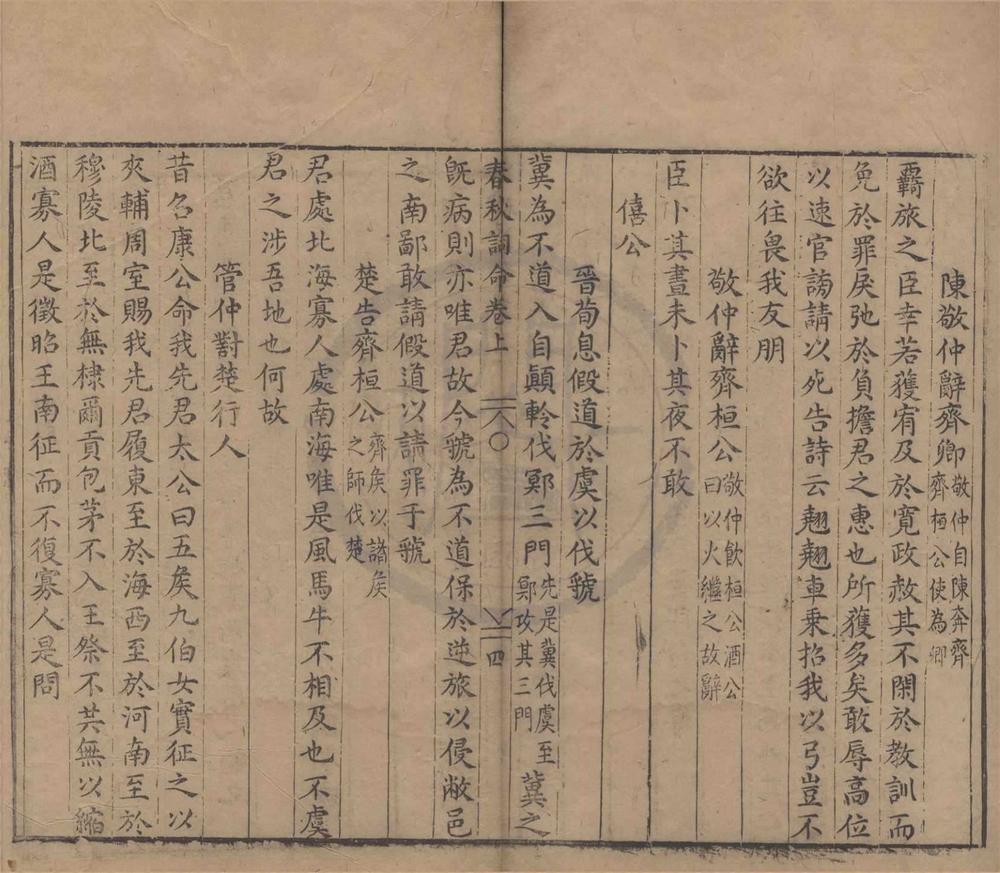 陳敬仲辭齊卿敬仲自陳奔齊齊桓公使為卿
覊旅之臣幸若獲宥及於寛政赦其不閑於教訓而
免於罪戾弛於負擔君之惠也所獲多矣敢辱高位
以速官謗請以死告詩云翹翹車乗招我以弓豈不
欲往畏我友朋
敬仲辭齊桓公敬仲飲桓公酒公曰以火繼之故辭
臣卜其晝未卜其夜不敢
僖公
晉荀息假道於虞以伐虢
冀為不道入自顚軨伐鄍三門先是冀伐虞至鄍攻其三門冀之
春秋詞命卷上
既病則亦唯君故今虢為不道保於逆旅以侵敝邑
之南鄙敢請假道以請罪于虢
楚告齊桓公齊矦以諸矦之師伐楚
君處北海寡人處南海唯是風馬牛不相及也不虞
君之涉吾地也何故
管仲對楚行人
昔召康公命我先君太公曰五矦九伯女實征之以
夾輔周室賜我先君履東至於海西至於河南至於
穆陵北至於無棣爾貢包茅不入王祭不共無以縮
酒寡人是徵昭王南征而不復寡人是問